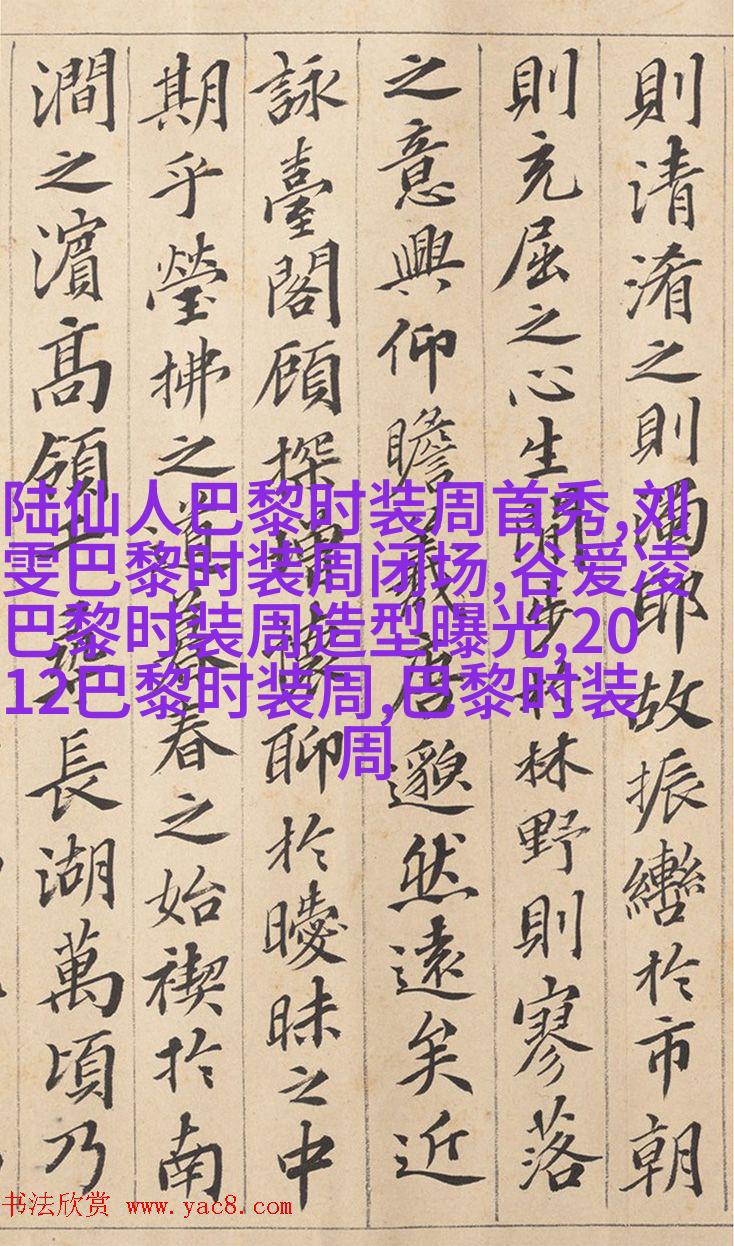 則清淆之則濁耶故振轡於市朝
則充屈之心生閒步於林野則寥落
之意興仰瞻羲唐邈然遠矣近
詠臺閣顧探增懷聊於曖昧之中
期乎瑩拂之道暮春之始禊於南
澗之濱高領千尋長湖萬頃乃
陆仙人巴黎时装周首秀,刘
雯巴黎时装周闭场,谷爱凌
巴黎时装周造型曝光,20
12巴黎时装周,巴黎时装
周
书法欣赏 www.yac8.com